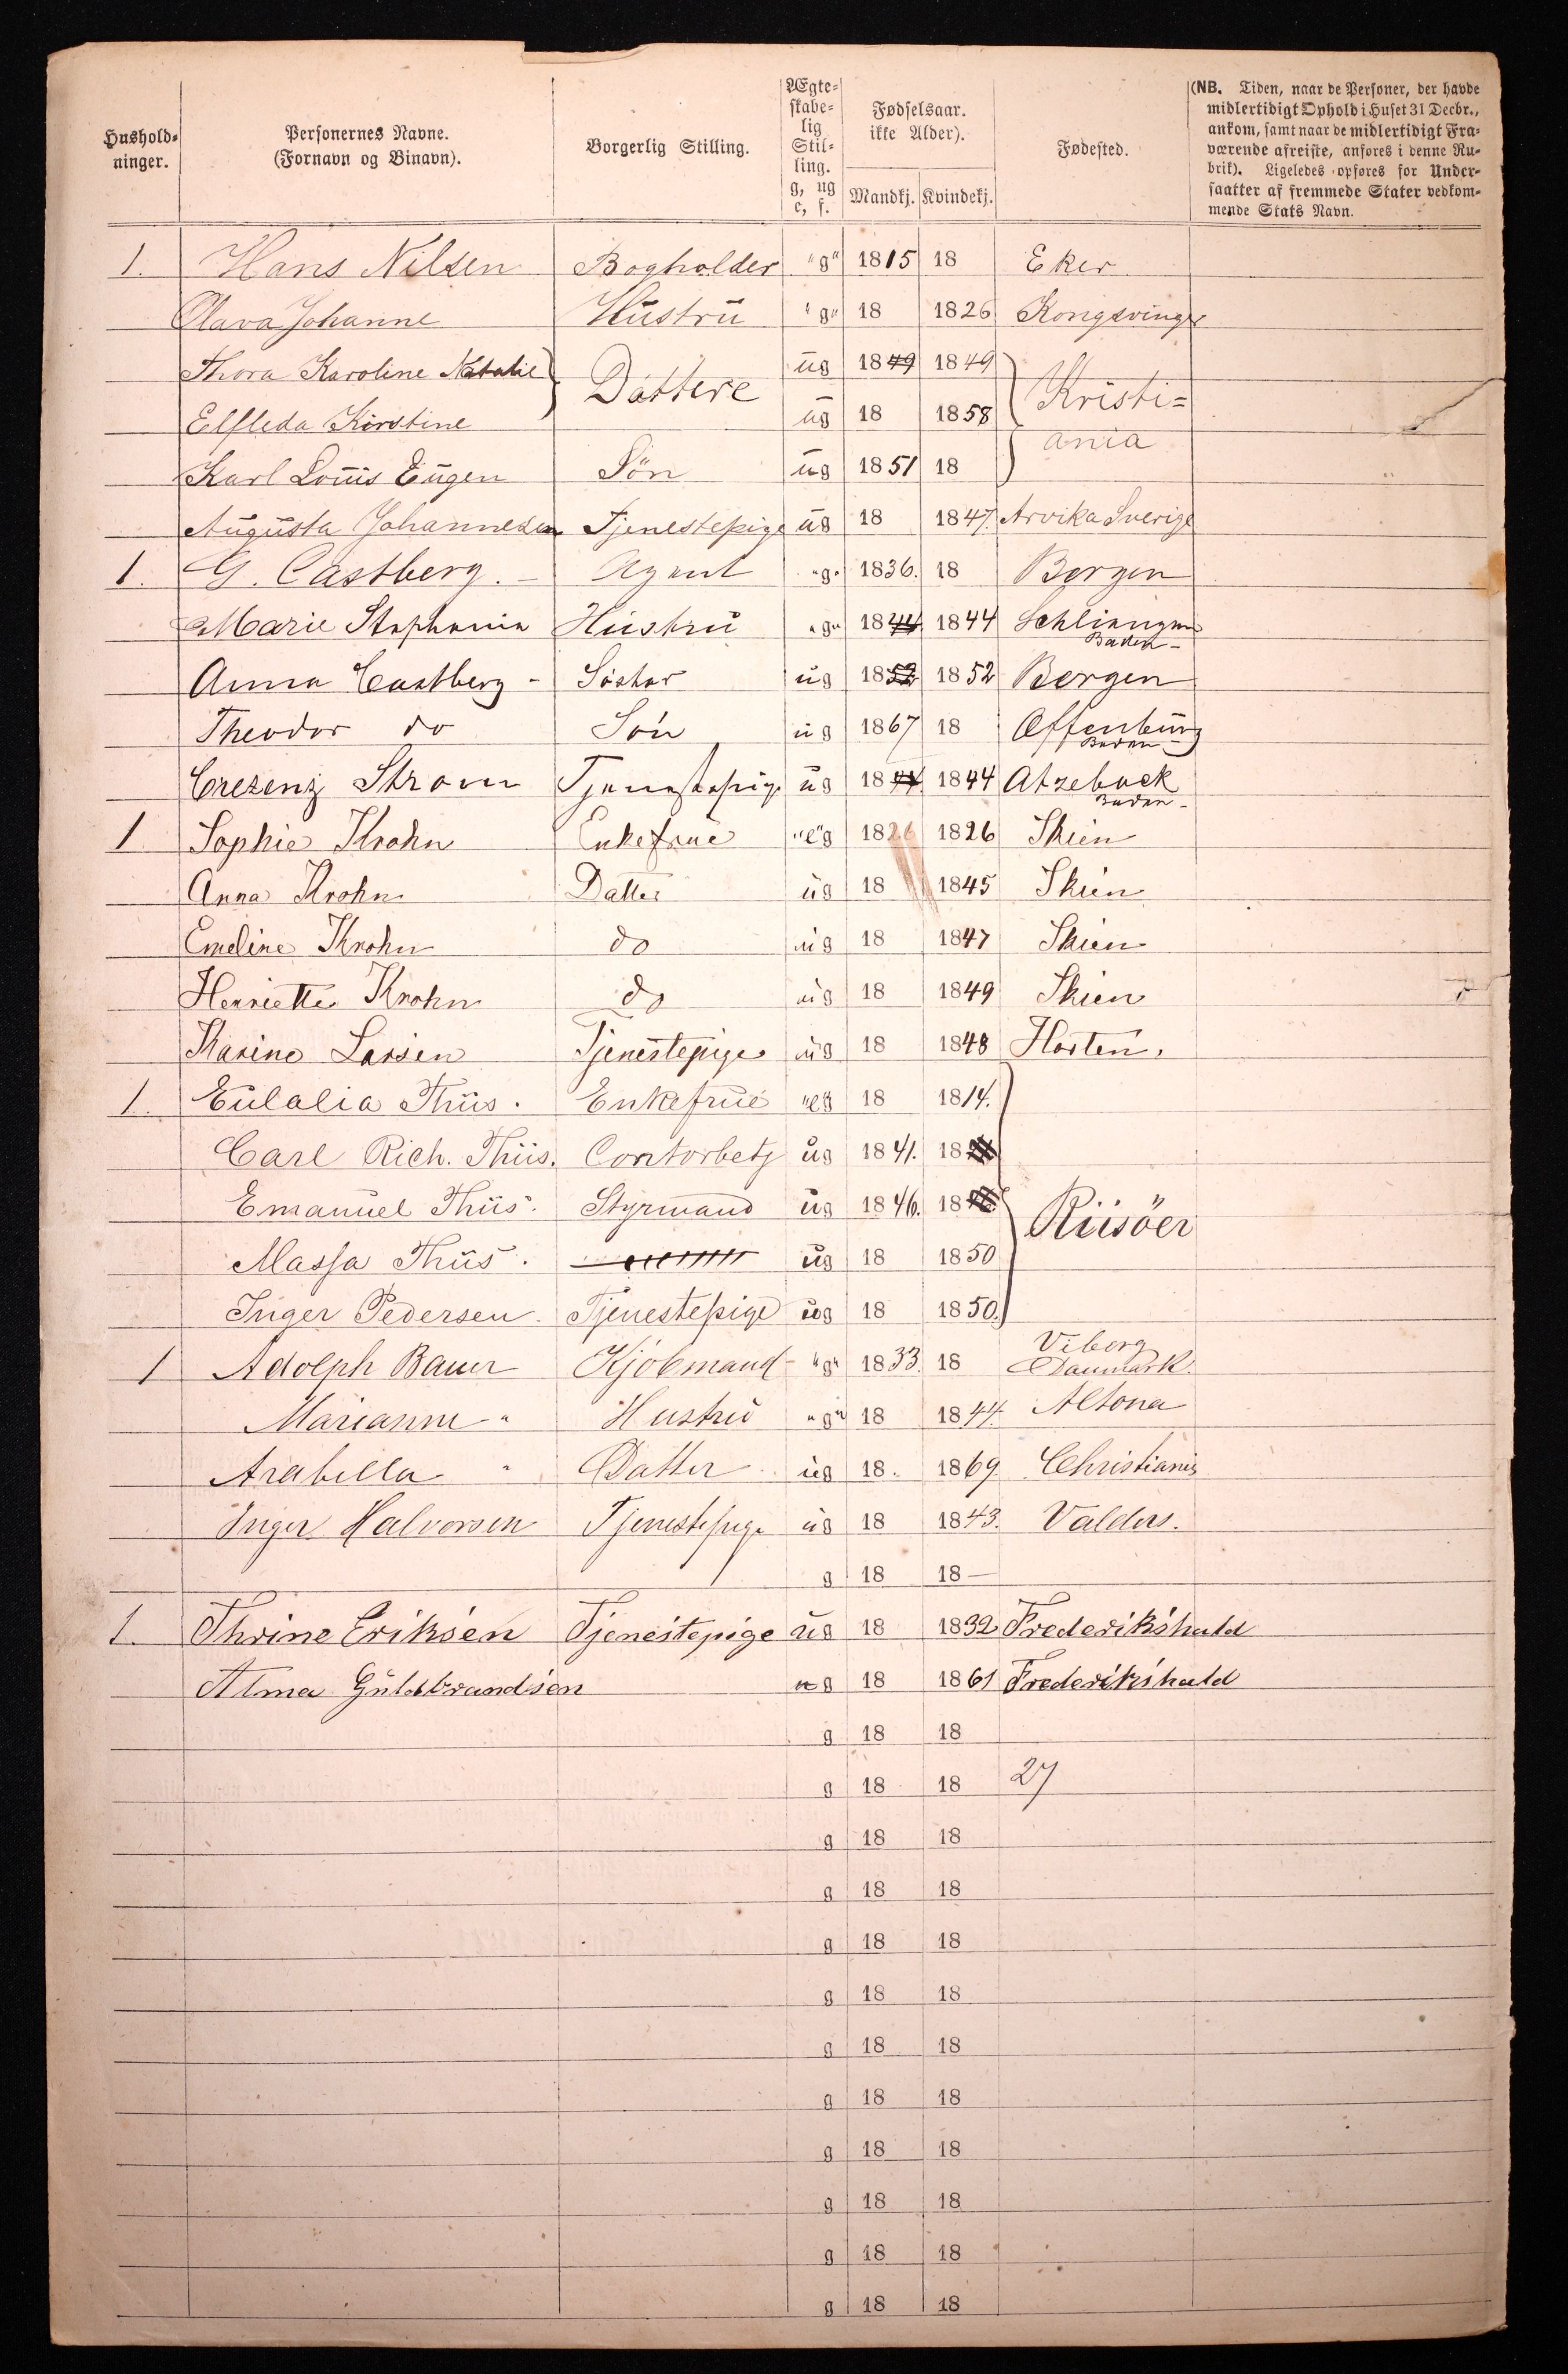 Hushold-
ninger.
Personernes Navne.
(Fornavn og Binavn).
Borgerlig Stilling.
Ægte-
skabe-
lig
Stil-
ling.
g, ug
e, f.
Fødselsaar.
ikke Alder).
Mandkj. Kvindekj.
Fødested.
(NB. Tiden, naar de Personer, der havde
midlertidigt Ophold i Huset 31 Decbr.,
ankom, samt naar de midlertidigt Fra-
værende afreiste, anføres i denne Ru-
brik). Ligeledes opføres for Under-
saatter af fremmede Stater vedkom-
mende Stats Navn.
1. Hans Nilsen Bogholder "g" 1815 18 Eker
Olava Johanne Hustru "g" 18 1826 Kongsvinger
Thora Karoline Natalie Døttere ug 1849 1849 Kristi=
Elfleda Kirstine ug 18 1858
ania
Karl Louis Eugen Søn ug 1851 18
Augusta Johannesen Tjenestepige ug 18 1847. Arvika Sverige
1. G. Castberg. Agent "g" 1836. 18 Bergen
Marie Stephania Hustru "g" 1844 1844 Schliengen
Baden
Anna Castberg Søster ug 1852 1852 Bergen
Theodor do Søn ug 1867 18 Offenburg
Baden
Crezenz Strom Tjenestepige ug 1844 1844 Atzeback
Baden
1 Sophie Krohn Enkefrue "e"g 1826 1826 Skien
Anna Krohn Datter ug 18 1845 Skien
Emeline Krohn do ug 18 1847 Skien
Henriette Krohn do ug 18 1849 Skien
Karine Larsen Tjenestepige ug 18 1848 Horten.
1. Eulalia Thiis. Enkefrue "eg 18 1814.
Carl Rich. Thiis. Contorbetj ug 1841. 18
Emanuel Thiis. Styrmand ug 1846. 18 Riisöer
Massa Thiis. ug 18 1850
Inger Pedersen. Tjenestepige ug 18 1850.
1 Adolph Bauer Kjøbmand "g" 1833. 18 Viborg
Danmark.
Marianne " Hustru "g" 18 1844. Altona
Arabella " Datter ug 18. 1869. Christiania
Inger Halvorsen Tjenestepige ug 18 1843. Valders.
g 18 18
1. Thrine Eriksen Tjenestepige ug 18 1832 Frederikshald
Alma Guldbrandsen ug 18 1861 Frederikshald
g 18 18
g 18 18 27
g 18 18
g 18 18
g 18 18
g 18 18
g 18 18
g 18 18
g 18 18
g 18 18
g 18 18
g 18 18